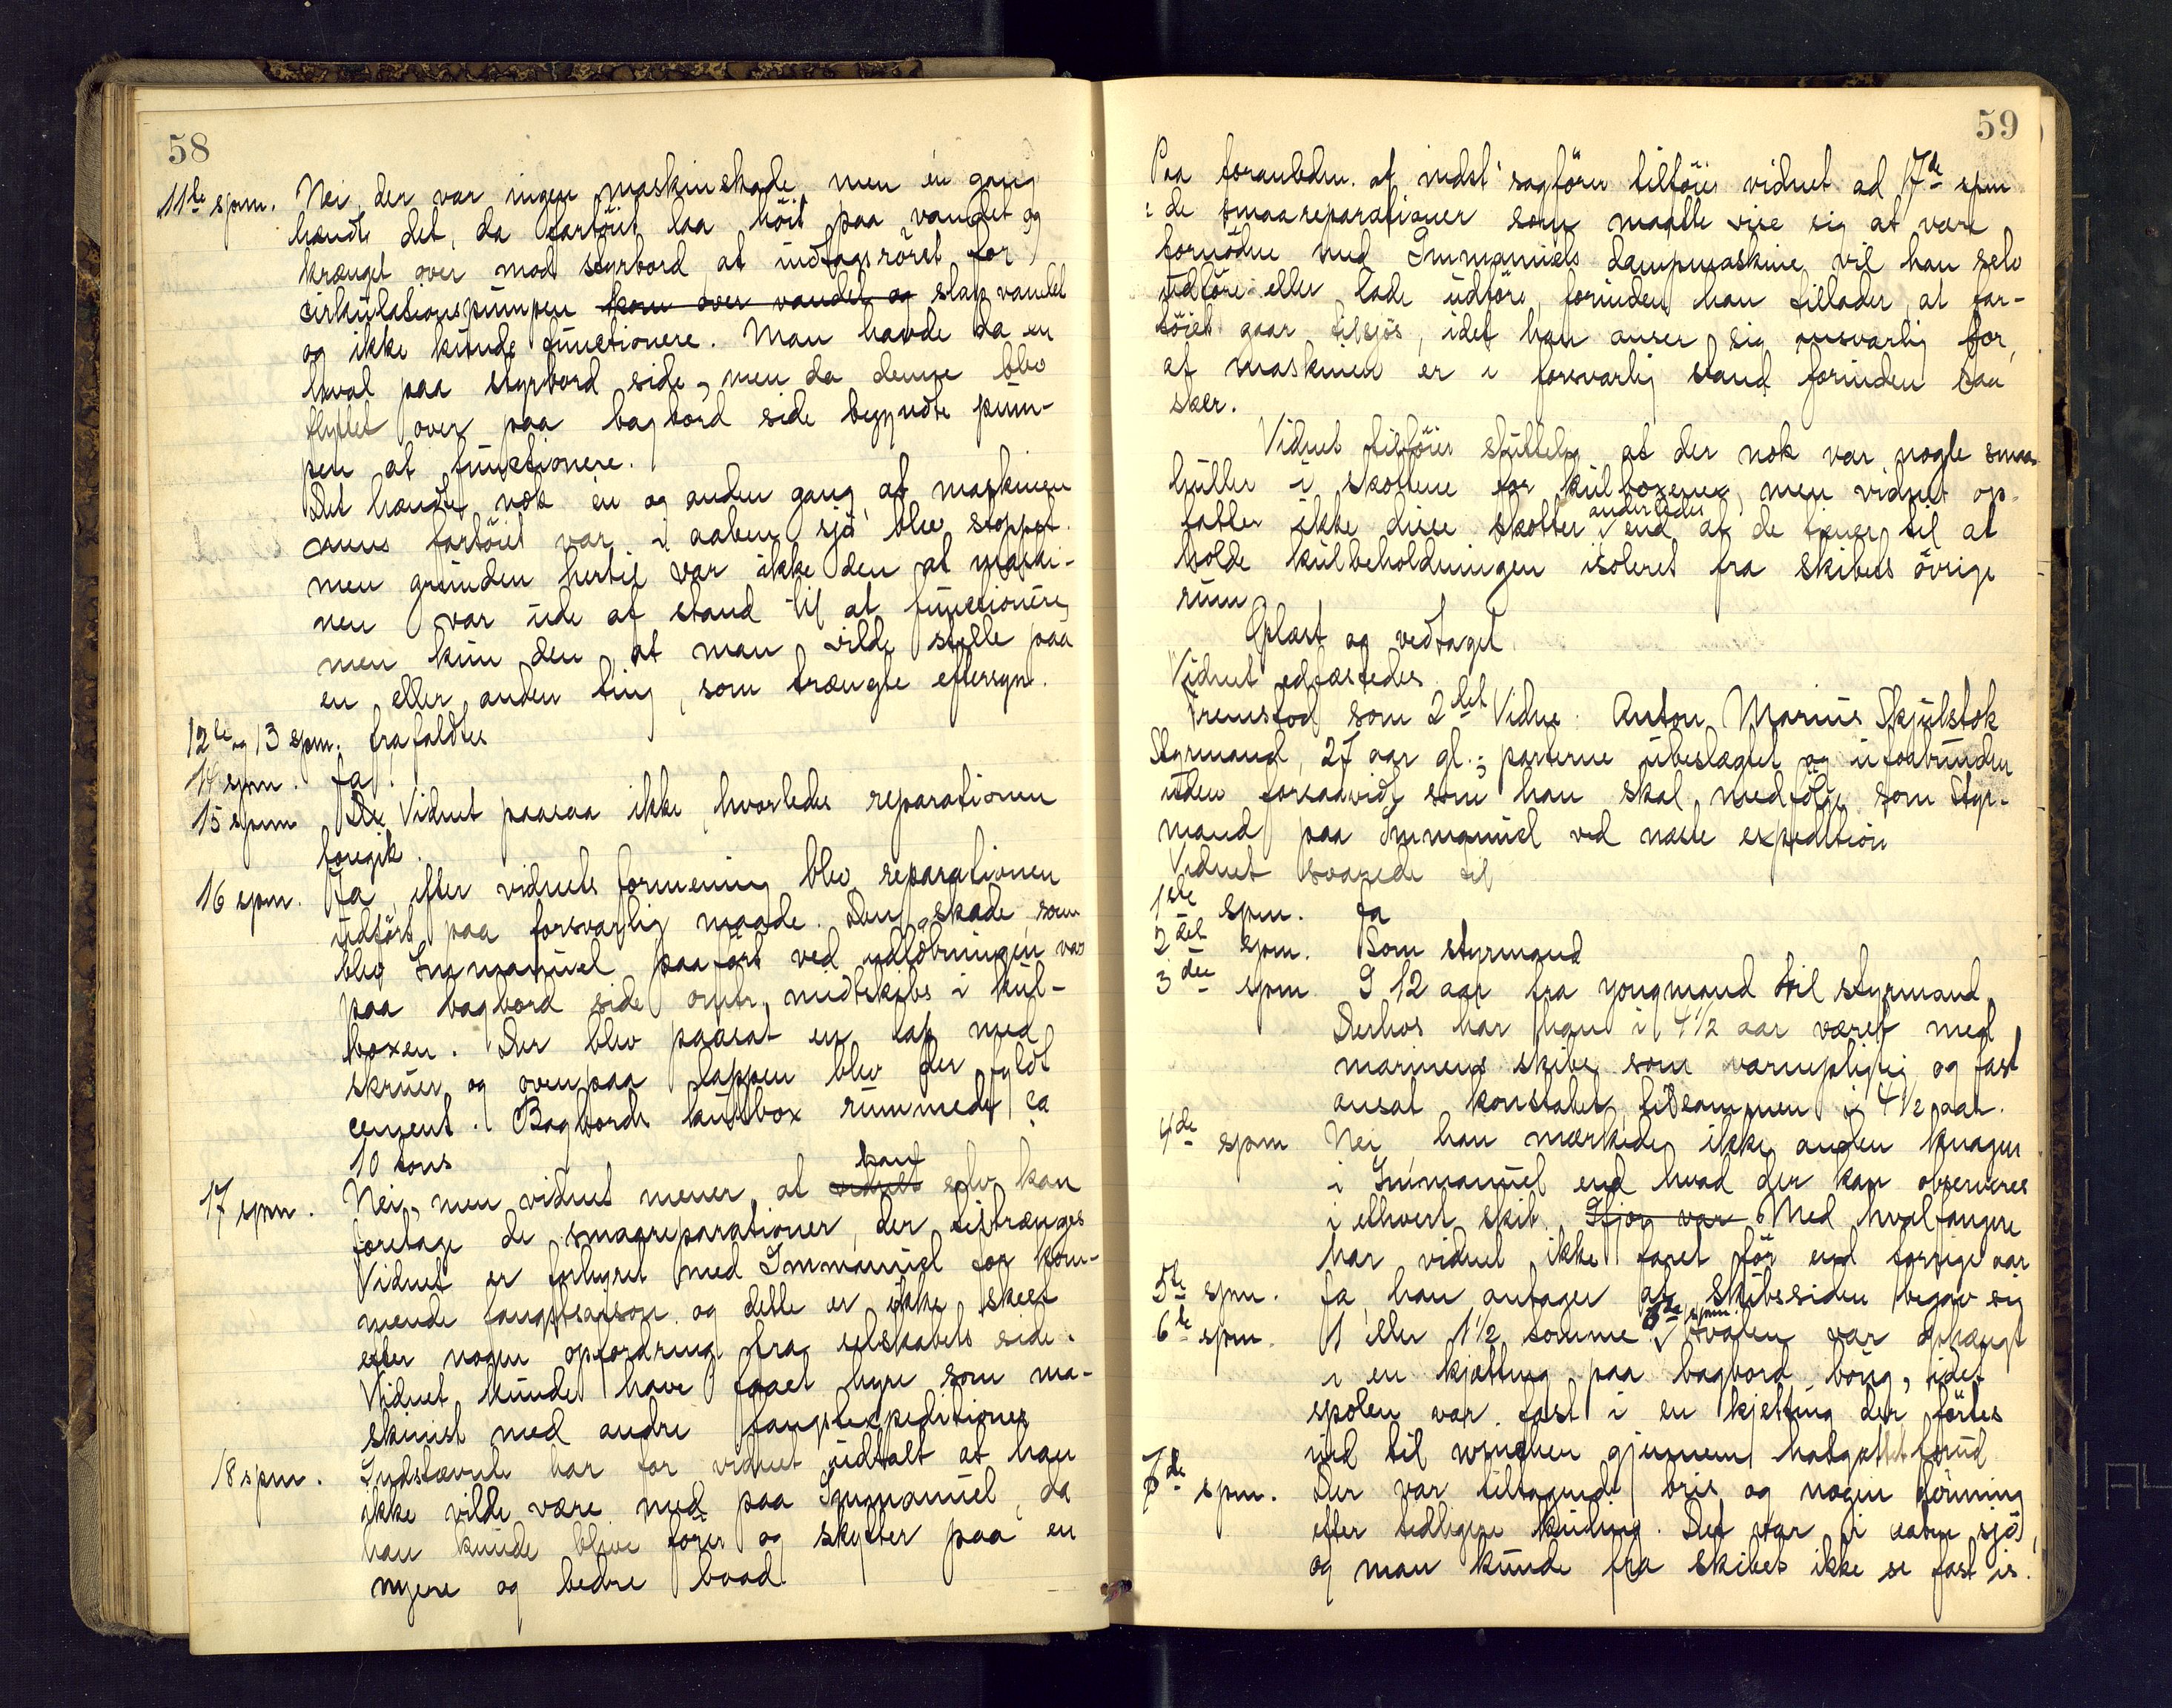 58
11te spm. Nei, der var ingen maskinskade, men én gang
hændte det, da fartöiet laa höit paa vandet og
krænget over mod styrbord at indtagsröret for
sirkülationspümpen kom over vandet og slap vandet
og ikke künde fünctionere. Man havde da en
hval paa styrbord side, men da denne blev
flyttet over paa bagbord side begyndte püm-
pen at fünctionere.
Det hændte nok én og anden gang at maskinen
mens fartöiet var i aaben sjö blev stoppet
men gründen hertil var ikke den at maski-
nen var üde af stand til at fünctionere,
men kün den at man vilde stelle paa
en eller anden ting, som trængte eftersyn.
12te og 13 spm. frafaldtes
14 spm. Ja.
15 spm De Vidnet paasaa ikke, hvorledes reparationen
foregik.
16 spm. Ja, efter vidnets formening blev reparationen
üdfört paa forsvarlig maade. Den skade, som
blev Immanüel paafört ved udlöbningen var
paa bagbord side omtr. midtskibs i kül-
boxen. Der blev paasat en lap med
skrüer og ovenpaa lappen blev der fyldt
cement. Bagbords külbox rümmede ca
10 tons
17 spm. Nei, men vidnet mener, at vidnet han selv kan
foretage de smaareparationer, der tiltrænges
Vidnet er forhyret med Immanüel for kom-
mende fangstsaison og dette er ikke skeet
efter nogen opfordring fra selskabets side.
Vidnet künde have faaet hyre som ma-
skinist med andre fangstexpeditioner
18 spm. Indstævnte har for vidnet üdtalt at han
ikke vilde være med paa Immanüel, da
han künde blive förer og skytter paa en
nyere og bedre baad.
59
Paa foranledn. af indst' sagförer tilföier vidnet ad 17de spm
: de smaareparationer som maatte vise sig at være
fornödne med Immanüels dampmaskine vil han selv
üdföre eller lade üdföre, forinden han tillader, at far-
töiet gaar tilsjös, idet han anser sig ansvarlig for,
at maskinen er i forsvarlig stand forinden saa
sker.
Vidnet tilföier slüttelig at der nok var nogle smaa
hüller i skottene for külboxene, men vidnet op-
fatter ikke disse skotter anderledes end at de tjener til at
holde külbeholdningen isoleret fra skibets övrige
rüm
Oplæst og vedtaget.
Vidnet edfæstedes.
Fremstod som 2det Vidne: Anton Marius Skjülstok
Styrmand, 27 aar gl.; parterne übeslægtet og üforbünden
üden forsaavidt som han skal medfölge som Styr-
mand paa Immanüel ved næste expedition
Vidnet svarede til
1ste spm. Ja
2det spm. Som styrmand
3die spm I 12 aar fra yongmand til styrmand
Derhos har han i 4 1/2 aar været med
marinens skibe som værnepligtig og fast
ansat konstabel, tilsammen i 4 1/2 aar.
4de spm Nei, han mærkede ikke anden knagen
i Immanüel end hvad der kan observeres
i ethvert skib. Ifjor var Med hvalfangere
har vidnet ikke faret för end forrige aar
5te spm. Ja, han antager at skibssiden begav sig
6te spm. 1 eller 1 1/2 tomme 6te spm. Hvalen var ophængt
i en kjetting paa bagbord böug, idet
spolen var fast i en kjetting der förtes
ind til winchen gjennem halsgattet forüd
7de spm. Der var tiltagende bris og nogen dönning
efter tidligere küling. Det var i aaben sjö,
og man künde fra skibet ikke se fast is.